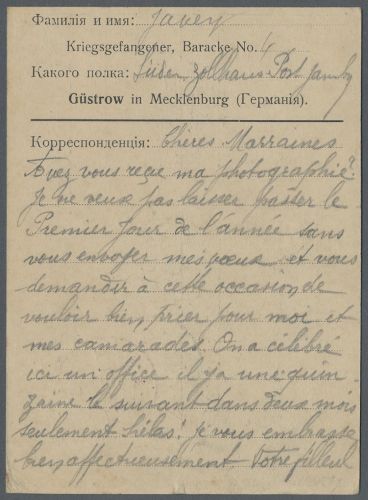 Фамилія и имя: Javey
Kriegsgefangener, Baracke No. 4
Какого полка: Süder Zollhaus Post
Güstrow in Mecklenburg (Германія).
Корреспонденція: Chères Marraines
Avez vous reçue ma photographie?
Je ne veux pas laisser passer le
Premier Jour de l'année sans
vous envoyer mes vœux et vous
demander à cette occasion de
vouloir bien prier pour moi et
mes camarades. On a célébré
ici un office il y a une quin-
zaine le suivant dans deux mois
seulement hélas! je vous embrasse
bien affectieusement Votre filleul